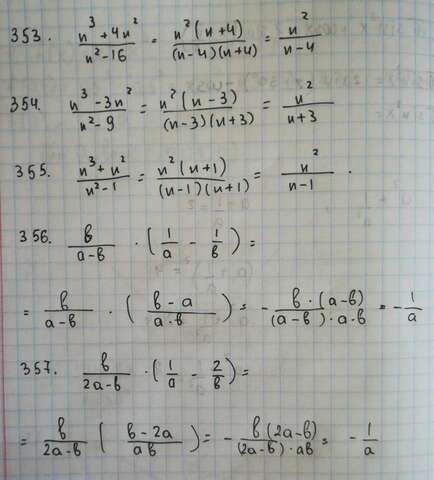 353. (n³ + 4n²)/(n² - 16) = (n²(n+4))/((n-4)(n+4)) = n²/(n-4)
354. (n³ - 3n²)/(n² - 9) = (n²(n-3))/((n-3)(n+3)) = n²/(n+3)
355. (n³ + n²)/(n² - 1) = (n²(n+1))/((n-1)(n+1)) = n²/(n-1).
356. в/(a-в) · (1/a - 1/в) =
= в/(a-в) · ((в-a)/(a·в)) = - (в·(a-в))/((a-в)·a·в) = - 1/a
357. в/(2a-в) · (1/a - 2/в) =
= в/(2a-в) ((в-2a)/(aв)) = - (в(2a-в))/((2a-в)·aв) = - 1/a